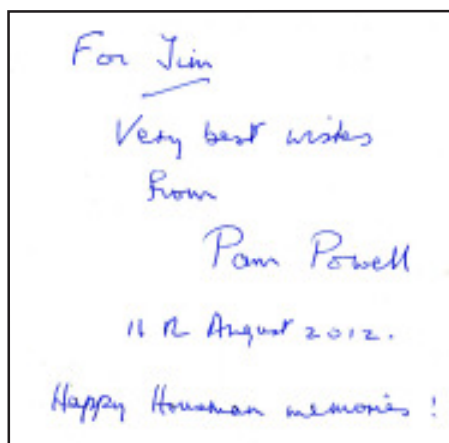 For Jim
Very best wishes
from
Pam Powell
11th August 2012.
Happy Housman memories!